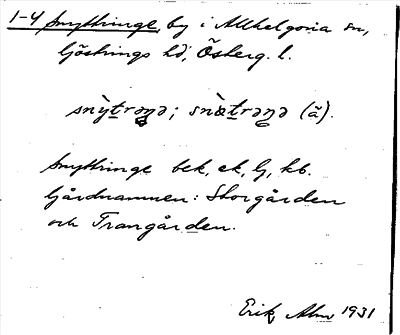 1-4 Snyttringe, by i Allhelgona sn,
Göstrings hd, Österg. l.
snỳtrəŋə; snœ̀trəŋə (ă).
Snyttringe bek, ek, lj, kb.
Gårdnamnen: Storgården
och Trangården.
Erik Alm 1931